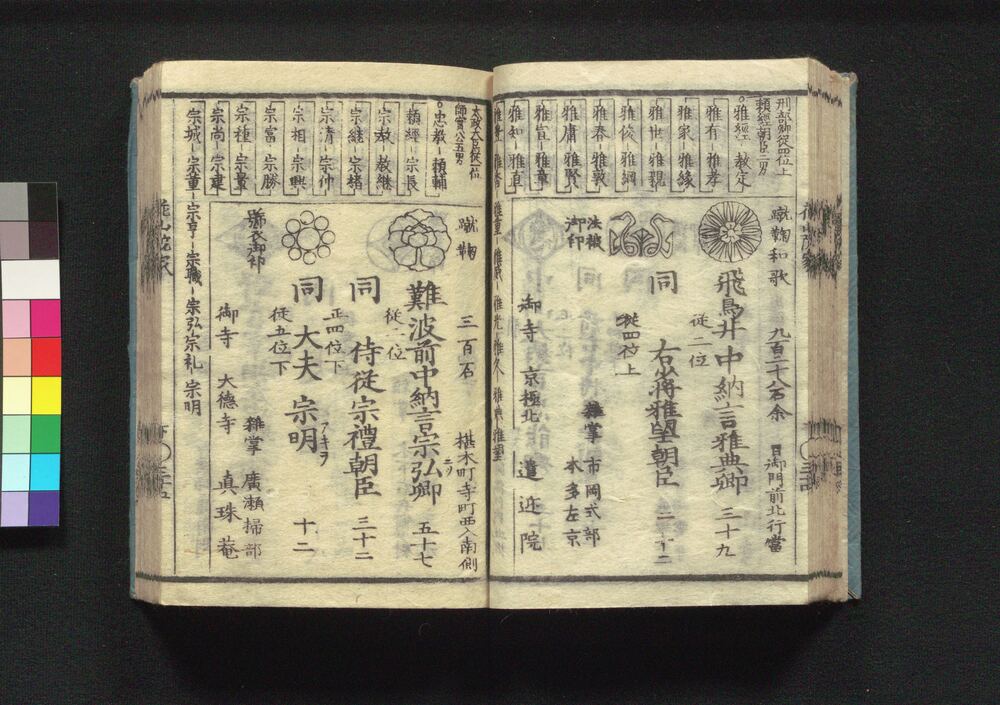 刑部卿従四位上
頼經朝臣二男
雅經 教定
雅有 雅孝
雅家 雅緣
雅世 雅親
雅俊 雅綱
雅春 雅敦
雅庸 雅賢
雅宣 雅章
雅知 雅直
雅重 雅威 雅光 雅久 雅典 雅望
蹴鞠和歌 九百二十八石余 日御門前北行當
飛鳥井中納言雅典卿 三十九
従二位
同 右少将雅望朝臣 二十二
従四位上
法被
御印
雜掌 市岡式部
本多左京
御寺 京極北 遣迎院
太政大臣従一位
師實公五男
忠教 頼輔
頼經 宗長
宗教 教継
宗継 宗緒
宗清 宗仲
宗相 宗興
宗富 宗勝
宗種 宗量
宗尚 宗建
宗城 宗董 宗亨 宗職 宗弘 宗礼 宗明
蹴鞠 三百石 椹木町寺町西入南側
難波前中納言宗弘卿 五十七
従二位
同 侍従宗禮朝臣 三十二
正四位下
同 大夫宗明 十二
従五位下
アキヲ
雜掌 廣瀬掃部
御寺 大徳寺 真珠菴